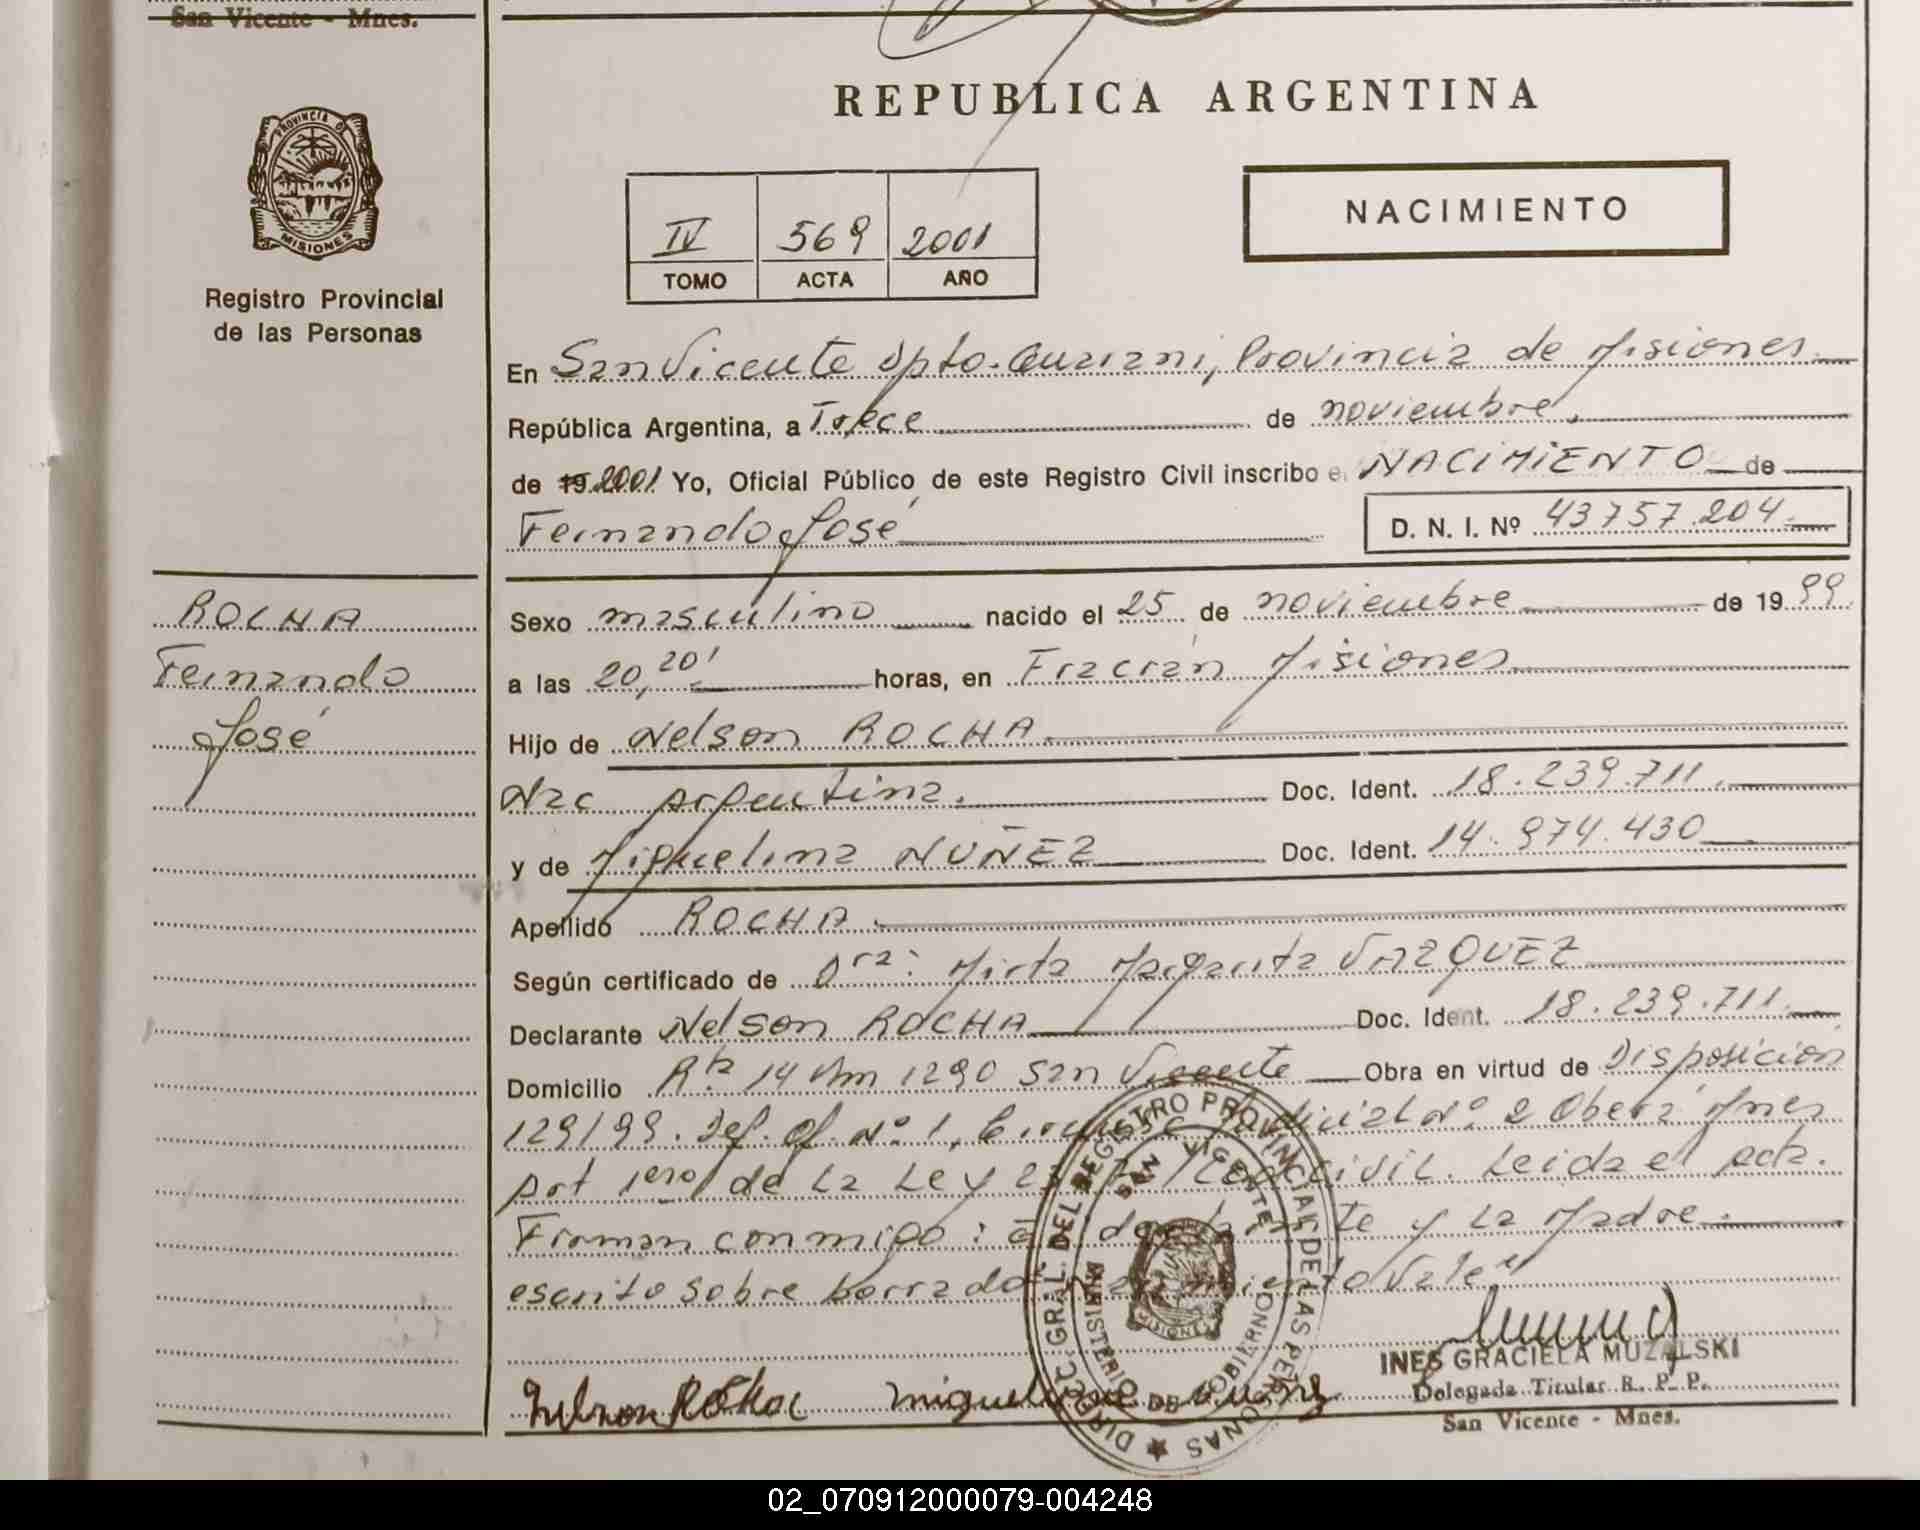 San Vicente - Mnes.
PROVINCIA DE
MISIONES
Registro Provincial
de las Personas
REPUBLICA ARGENTINA
IV 569 2001
TOMO ACTA AÑO
NACIMIENTO
En San Vicente Dpto. Guaraní, Provincia de Misiones
República Argentina, a Trece de noviembre
de 19 2001 Yo, Oficial Público de este Registro Civil inscribo e NACIMIENTO de
Fernando José D. N. I. Nº 43757.204
ROCHA
Fernando
José
Sexo masculino nacido el 25 de noviembre de 19 99
a las 20,20' horas, en Fracrán Misiones
Hijo de Nelson ROCHA
Nac Argentina. Doc. Ident. 18.239.711.
y de Miguelina NUÑEZ Doc. Ident. 14.974.430
Apellido ROCHA.
Según certificado de Dra: Mirta Margarita VAZQUEZ
Declarante Nelson ROCHA Doc. Ident. 18.239.711.
Domicilio Rta 14 Km 1290 San Vicente Obra en virtud de Disposición
129/99. Def. Of. Nº 1, Judicial Nº 2 Oberá Mnes
Art 1ero de La Ley Civil. Leida el acta.
Firman conmigo: el declarante y La Madre.
escrito sobre borrado: "nacimiento Vale"
DIREC. GRAL. DEL REGISTRO PROVINCIAL DE LAS PERSONAS
SAN VICENTE
MINISTERIO DE GOBIERNO
MISIONES
Nelson Rocha Miguelina Nuñez
INES GRACIELA MUZALSKI
Delegada Titular R. P. P.
San Vicente - Mnes.
02_070912000079-004248